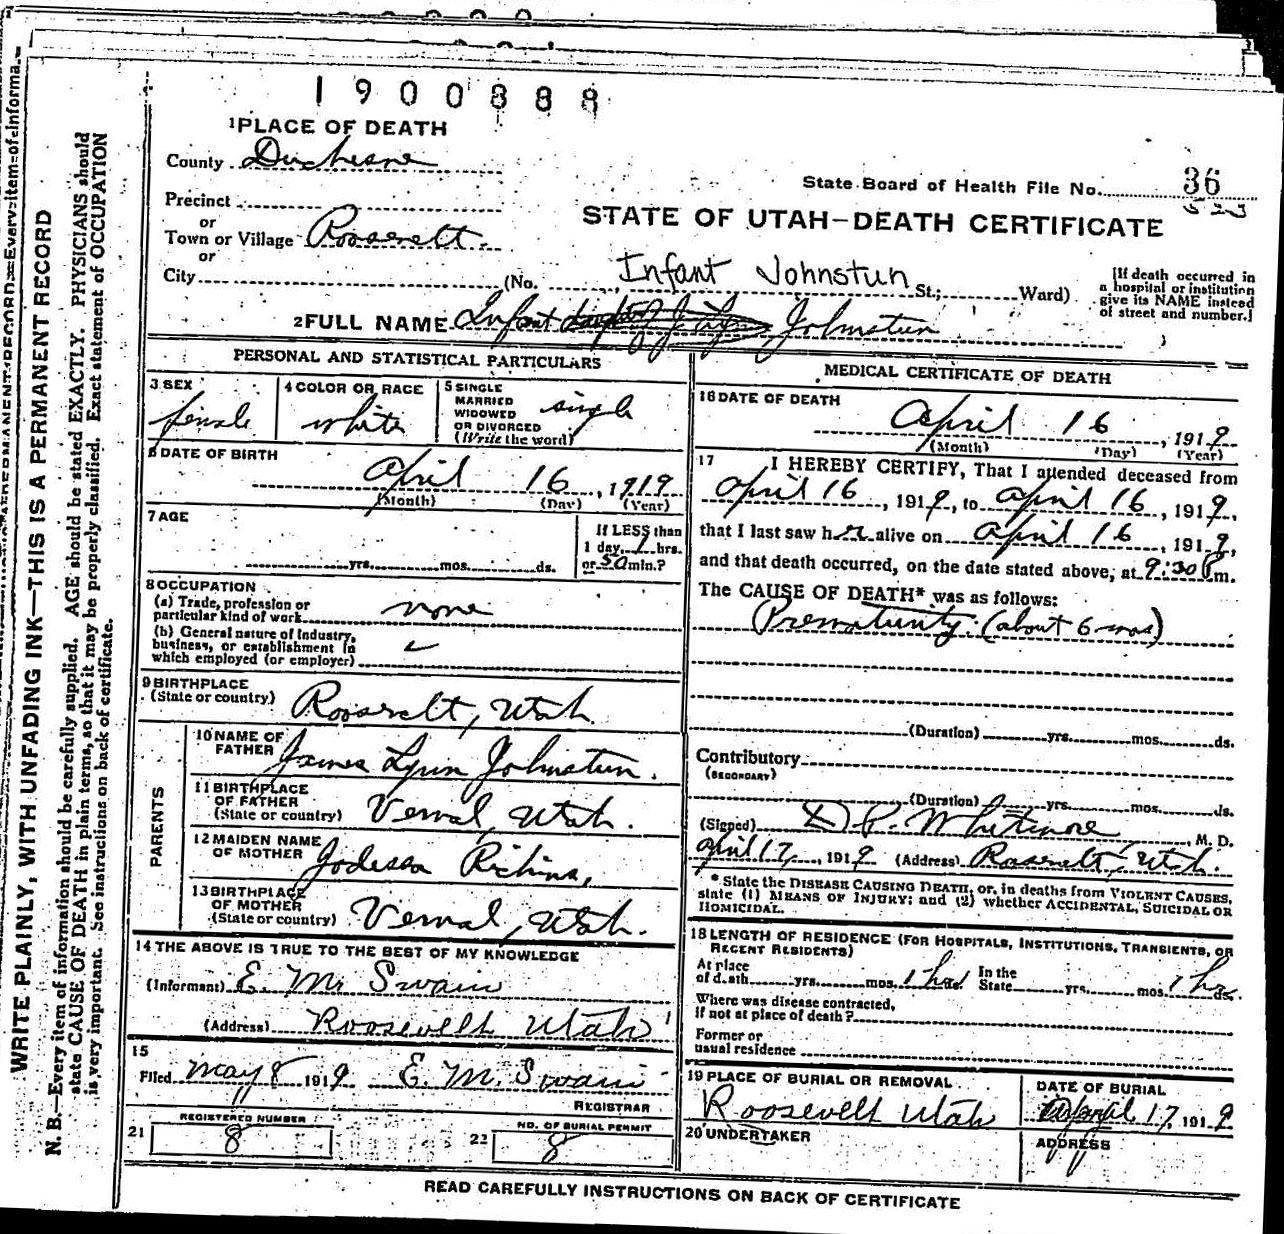 1900888
1 PLACE OF DEATH
County Duchesne
State Board of Health File No. 36
523
Precinct
or
Town or Village Roosevelt
or
STATE OF UTAH—DEATH CERTIFICATE
City (No. Infant Johnstun St.; Ward)
[If death occurred in
a hospital or institution
give its NAME instead
of street and number.]
2 FULL NAME Infant Johnstun
PERSONAL AND STATISTICAL PARTICULARS
3 SEX
female
4 COLOR OR RACE
white
5 SINGLE
MARRIED
WIDOWED
OR DIVORCED
(Write the word)
single
6 DATE OF BIRTH
April 16, 1919
(Month) (Day) (Year)
7 AGE
yrs. mos. ds.
If LESS than
1 day 1 hrs.
or 50 min.?
8 OCCUPATION
(a) Trade, profession or
particular kind of work none
(b) General nature of Industry,
business, or establishment in
which employed (or employer)
9 BIRTHPLACE
(State or country) Roosevelt, Utah
PARENTS
10 NAME OF
FATHER James Lynn Johnstun.
11 BIRTHPLACE
OF FATHER
(State or country) Vernal, Utah.
12 MAIDEN NAME
OF MOTHER Richins,
13 BIRTHPLACE
OF MOTHER
(State or country) Vernal, Utah.
14 THE ABOVE IS TRUE TO THE BEST OF MY KNOWLEDGE
(Informant) E. M. Swain
(Address) Roosevelt Utah
15
Filed May 8 1919 E. M. Swain
REGISTRAR
REGISTERED NUMBER
21 8
NO. OF BURIAL PERMIT
22 8
MEDICAL CERTIFICATE OF DEATH
16 DATE OF DEATH
April 16, 1919
(Month) (Day) (Year)
17 I HEREBY CERTIFY, That I attended deceased from
April 16, 1919, to April 16, 1919,
that I last saw her alive on April 16, 1919,
and that death occurred, on the date stated above, at 9:30 P m.
The CAUSE OF DEATH* was as follows:
Prematurity. (about 6 mos)
(Duration) yrs. mos. ds.
Contributory
(SECONDARY)
(Duration) yrs. mos. ds.
(Signed) D. P. Whitmore, M. D.
April 17, 1919 (Address) Roosevelt, Utah.
* State the DISEASE CAUSING DEATH, or, in deaths from VIOLENT CAUSES,
state (1) MEANS OF INJURY; and (2) whether ACCIDENTAL, SUICIDAL OR
HOMICIDAL.
18 LENGTH OF RESIDENCE (FOR HOSPITALS, INSTITUTIONS, TRANSIENTS, OR
RECENT RESIDENTS)
At place
of death yrs. mos. 1 hrs. In the
State yrs. mos. 1 hrs. ds.
Where was disease contracted,
if not at place of death?
Former or
usual residence
19 PLACE OF BURIAL OR REMOVAL
Roosevelt Utah
DATE OF BURIAL
April 17, 1919
20 UNDERTAKER
ADDRESS
READ CAREFULLY INSTRUCTIONS ON BACK OF CERTIFICATE
WRITE PLAINLY, WITH UNFADING INK—THIS IS A PERMANENT RECORD
N. B.—Every item of information should be carefully supplied. AGE should be stated EXACTLY. PHYSICIANS should
state CAUSE OF DEATH in plain terms, so that it may be properly classified. Exact statement of OCCUPATION
is very important. See instructions on back of certificate.